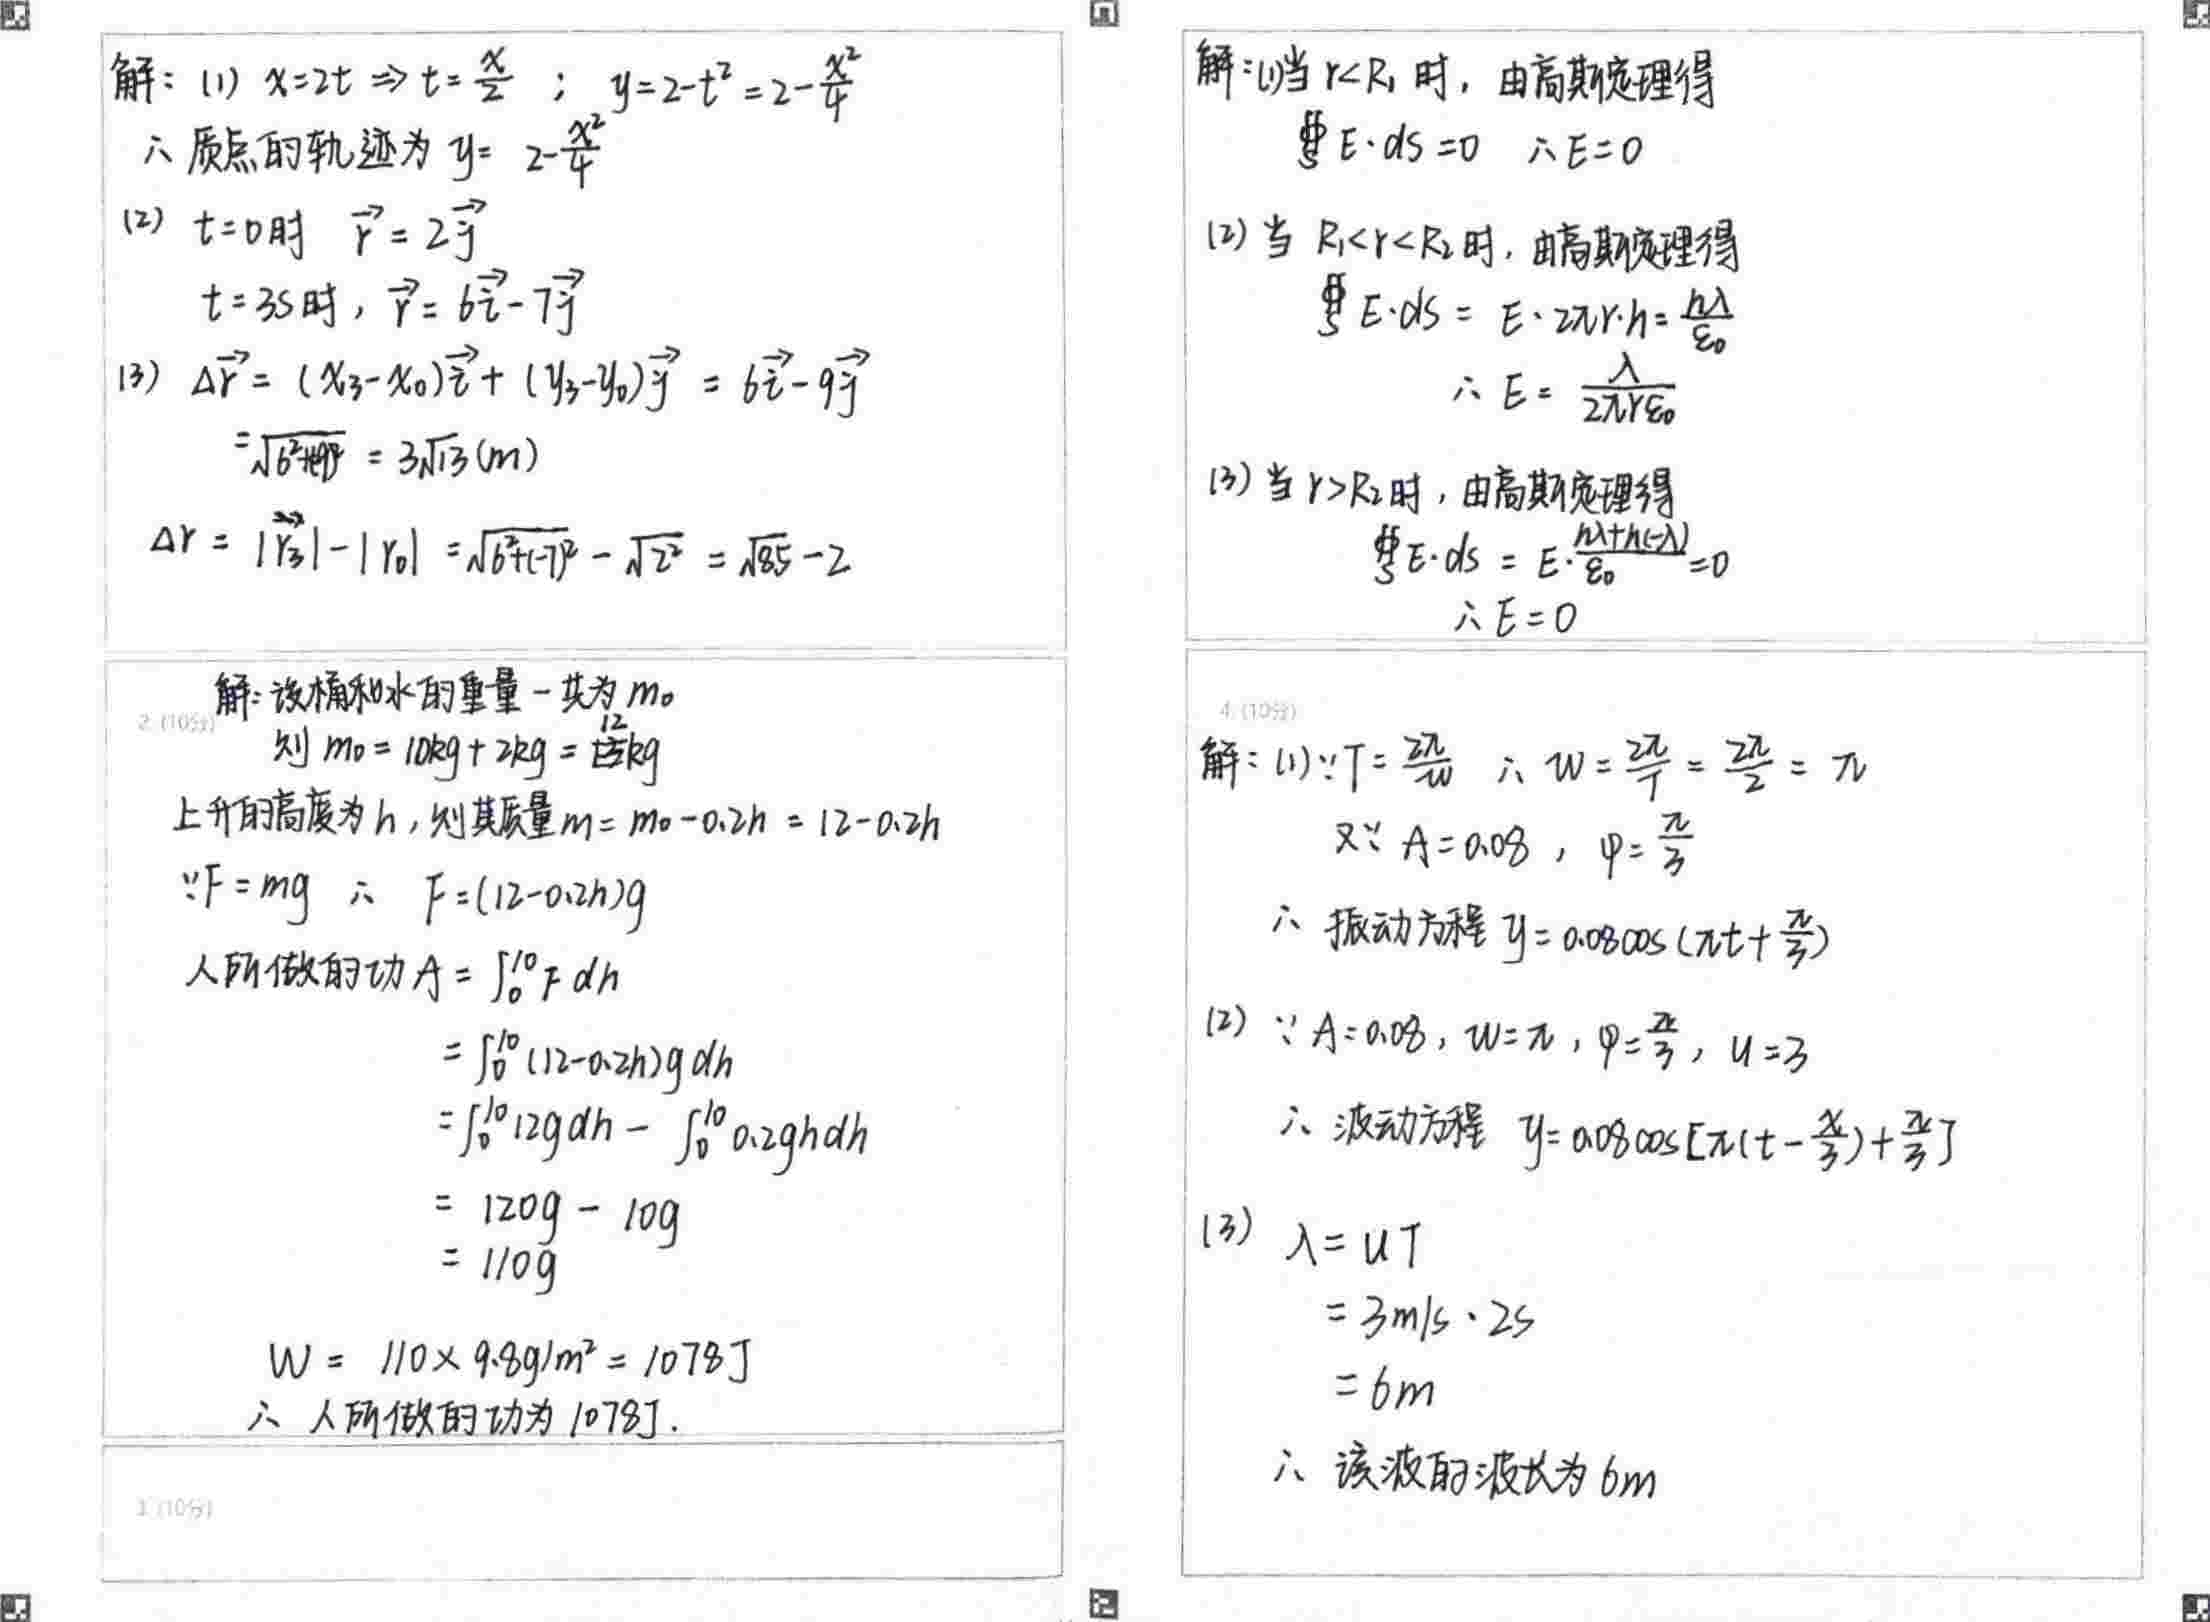 解: (1) x=2t ⇒ t=x/2 ; y=2-t²=2-x²/4
∴ 质点的轨迹为 y= 2-x²/4
(2) t=0时 r⃗ = 2j⃗
t=3s时, r⃗ = 6i⃗-7j⃗
(3) Δr⃗ = (x₃-x₀)i⃗+(y₃-y₀)j⃗ = 6i⃗-9j⃗
= = 3√13 (m)
Δr = |r₃|-|r₀| =√(6²+(-7)²) - √2² = √85-2
2. (10分)
解: 设桶和水的重量一共为 m₀
则 m₀ = 10kg+2kg = 12kg
上升的高度为h, 则其质量m= m₀-0.2h = 12-0.2h
∵F=mg ∴ F=(12-0.2h)g
人所做的功 A = ∫₀¹⁰ F dh
= ∫₀¹⁰ (12-0.2h)g dh
=∫₀¹⁰ 12g dh - ∫₀¹⁰ 0.2gh dh
= 120g - 10g
= 110g
W = 110×9.8g/m² = 1078J
∴ 人所做的功为 1078J.
3. (10分)
解:(1)当 r<R₁ 时, 由高斯定理得
∯s E·ds =0 ∴E=0
(2) 当 R₁<r<R₂时, 由高斯定理得
∯s E·ds = E·2πr·h= hλ/ε₀
∴ E = λ/2πrε₀
(3) 当 r>R₂时, 由高斯定理得
∯s E·ds = E·(hλ+h(-λ))/ε₀ =0
∴ E=0
4. (10分)
解: (1)∵T= 2π/w ∴ w = 2π/T = 2π/2 = π
又∵ A=0.08 , φ=π/3
∴ 振动方程 y= 0.08cos(πt+π/3)
(2) ∵ A=0.08, w=π, φ=π/3, u=3
∴ 波动方程 y=0.08cos[π(t-x/3)+π/3]
(3) λ= uT
= 3m/s·2s
= 6m
∴ 该波的波长为 6m